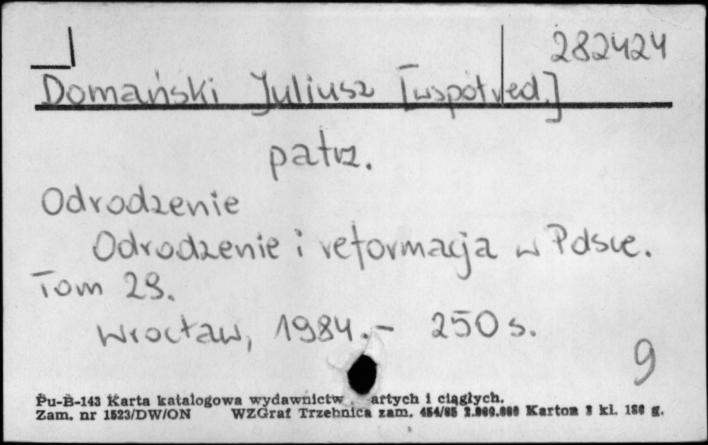 282424
Domański Juliusz [współred.]
patrz.
Odrodzenie
Odrodzenie i reformacja w Polsce.
Tom 29.
Wrocław, 1984.- 250 s.
9
Pu-B-143 Karta katalogowa wydawnictw artych i ciągłych.
Zam. nr 1523/DW/ON WZGraf Trzebnica zam. 454/85 2.000.000 Karton 3 kl. 180 g.